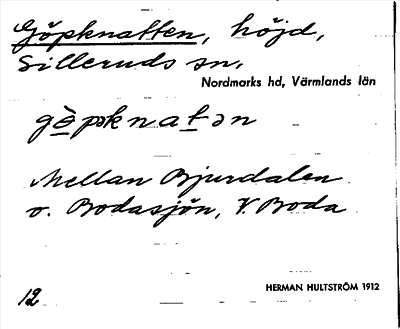 Göpknatten, höjd,
Silleruds sn.
Nordmarks hd, Värmlands län
gö̀pknatən
Mellan Bjurdalen
o. Bodasjön, V. Boda
HERMAN HULTSTRÖM 1912
12